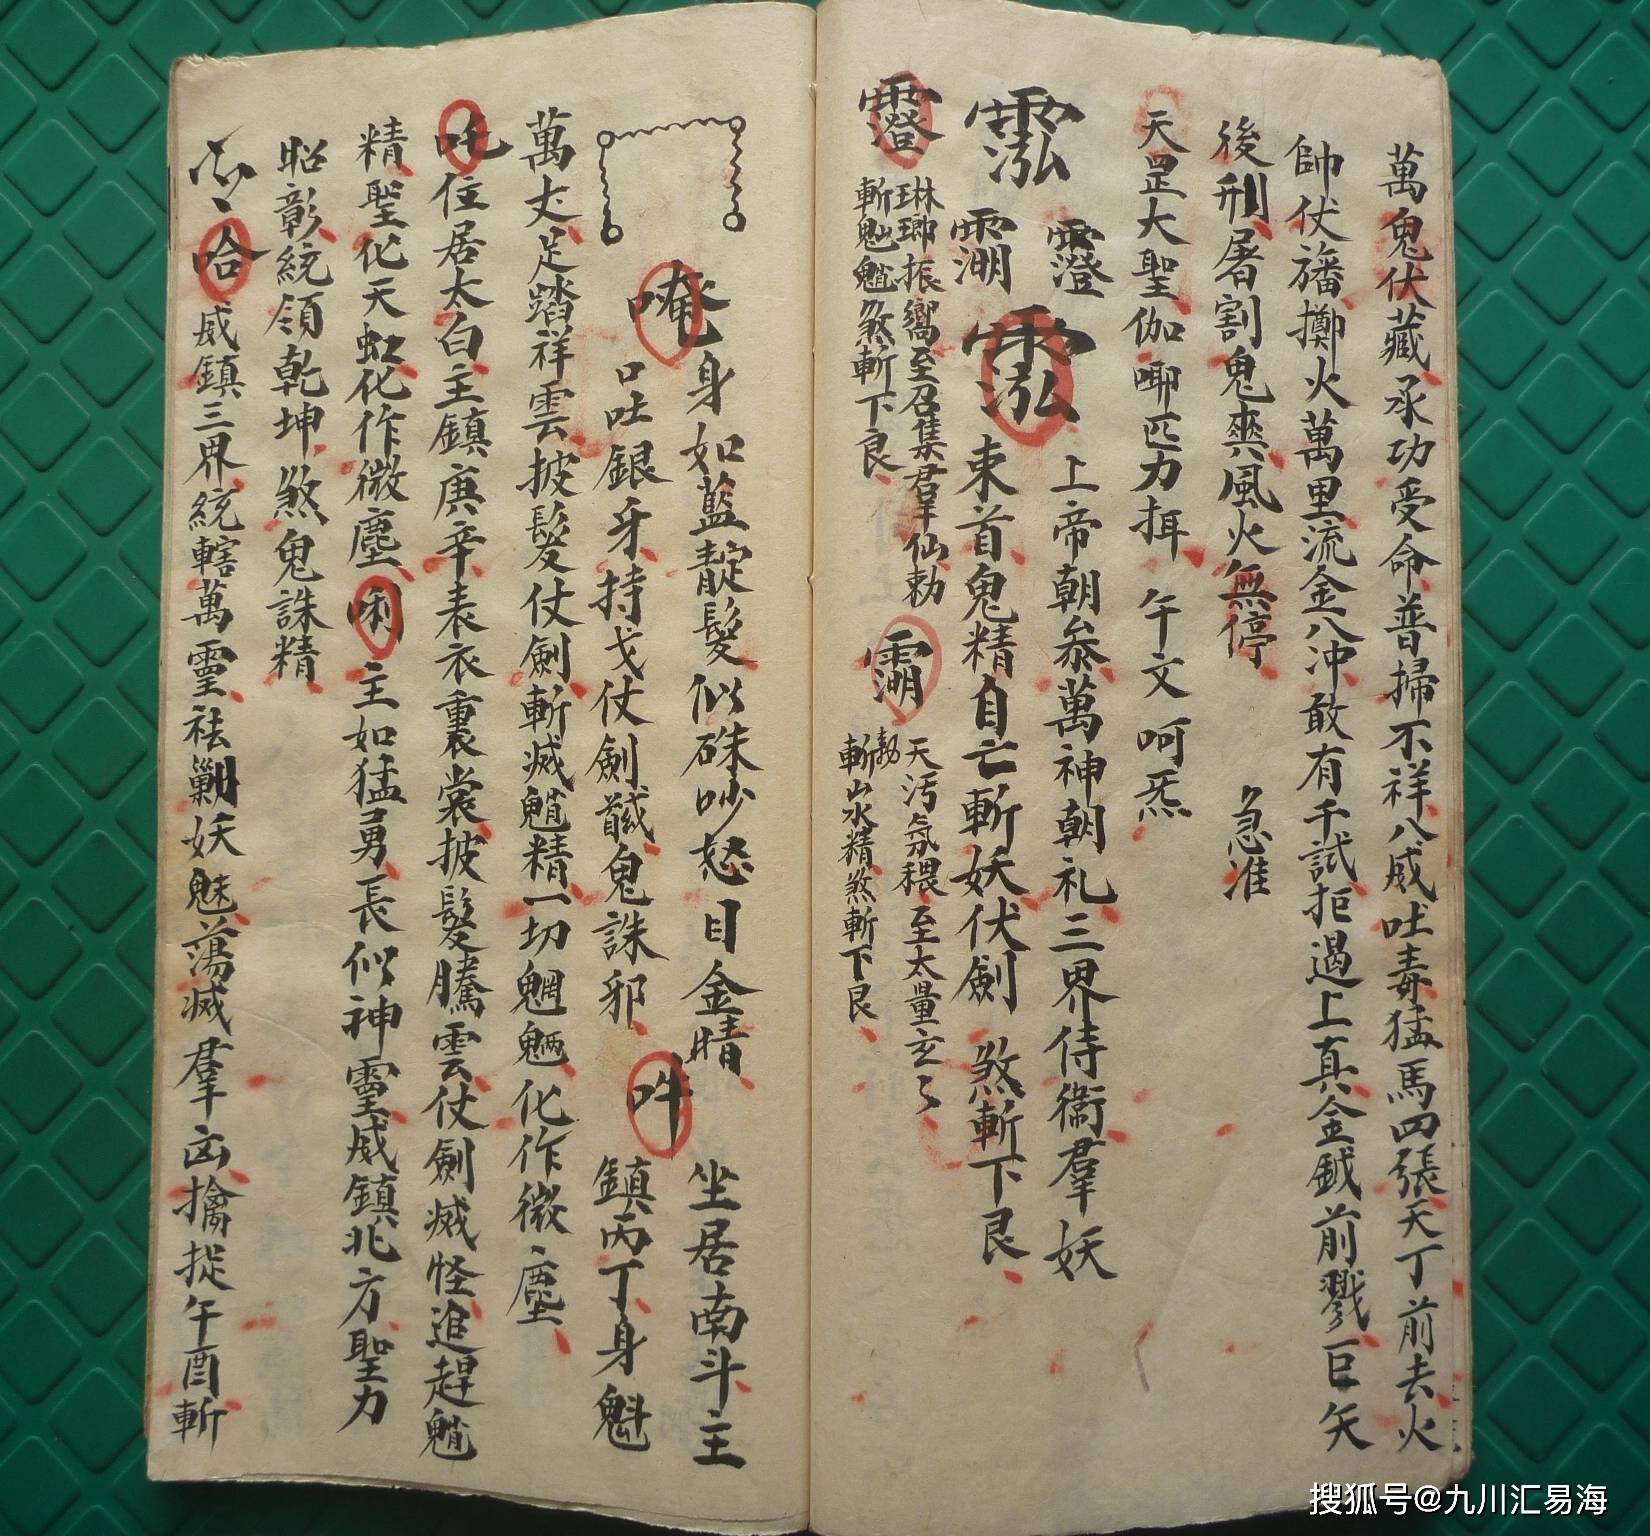 萬鬼伏藏承功受命普掃不祥八威吐毒猛馬四張天丁前去火
帥伏旛擲火萬里流金八冲敢有千試拒遏上真金鉞前戮巨矢
後刑屠割鬼爽風火無停 急准
天罡大聖伽唧匹力挕 午文呵炁
澄 上帝朝叅萬神朝礼三界侍衞羣妖
東首鬼精自亡斬妖伏劍 煞斬下艮
琳瑯振嚮至召集君羊仙勅
斬魈煞斬下艮
天汚氛穢至太量玄了
勅斬山水精煞斬下艮
唵身如藍靛髮似硃吵怒目金睛 坐居南斗主
口吐銀牙持戈仗劍馘鬼誅邪 吽 鎮丙丁身魁
萬丈足踏祥雲披髮仗劍斬滅魈精一切魍魎化作微塵
吒位居太白主鎮庚辛表衣重裳披髮騰雲仗劍滅怪追趕魈
精聖化天虹化作微塵 唎主如猛勇長似神靈威鎮北方聖力
昭彰統領乾坤煞鬼誅精
哈威鎮三界統轄萬靈祛勦妖魅蕩滅羣凶擒捉午酉斬
搜狐号@九川汇易海